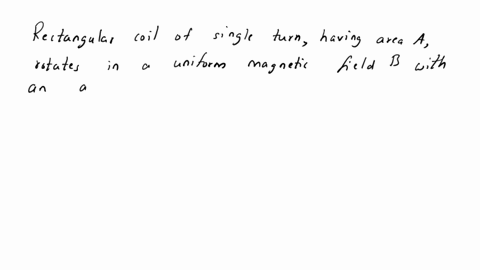 Rectangular coil of single turn, having area A,
rotates in a uniform magnetic field B with
an a